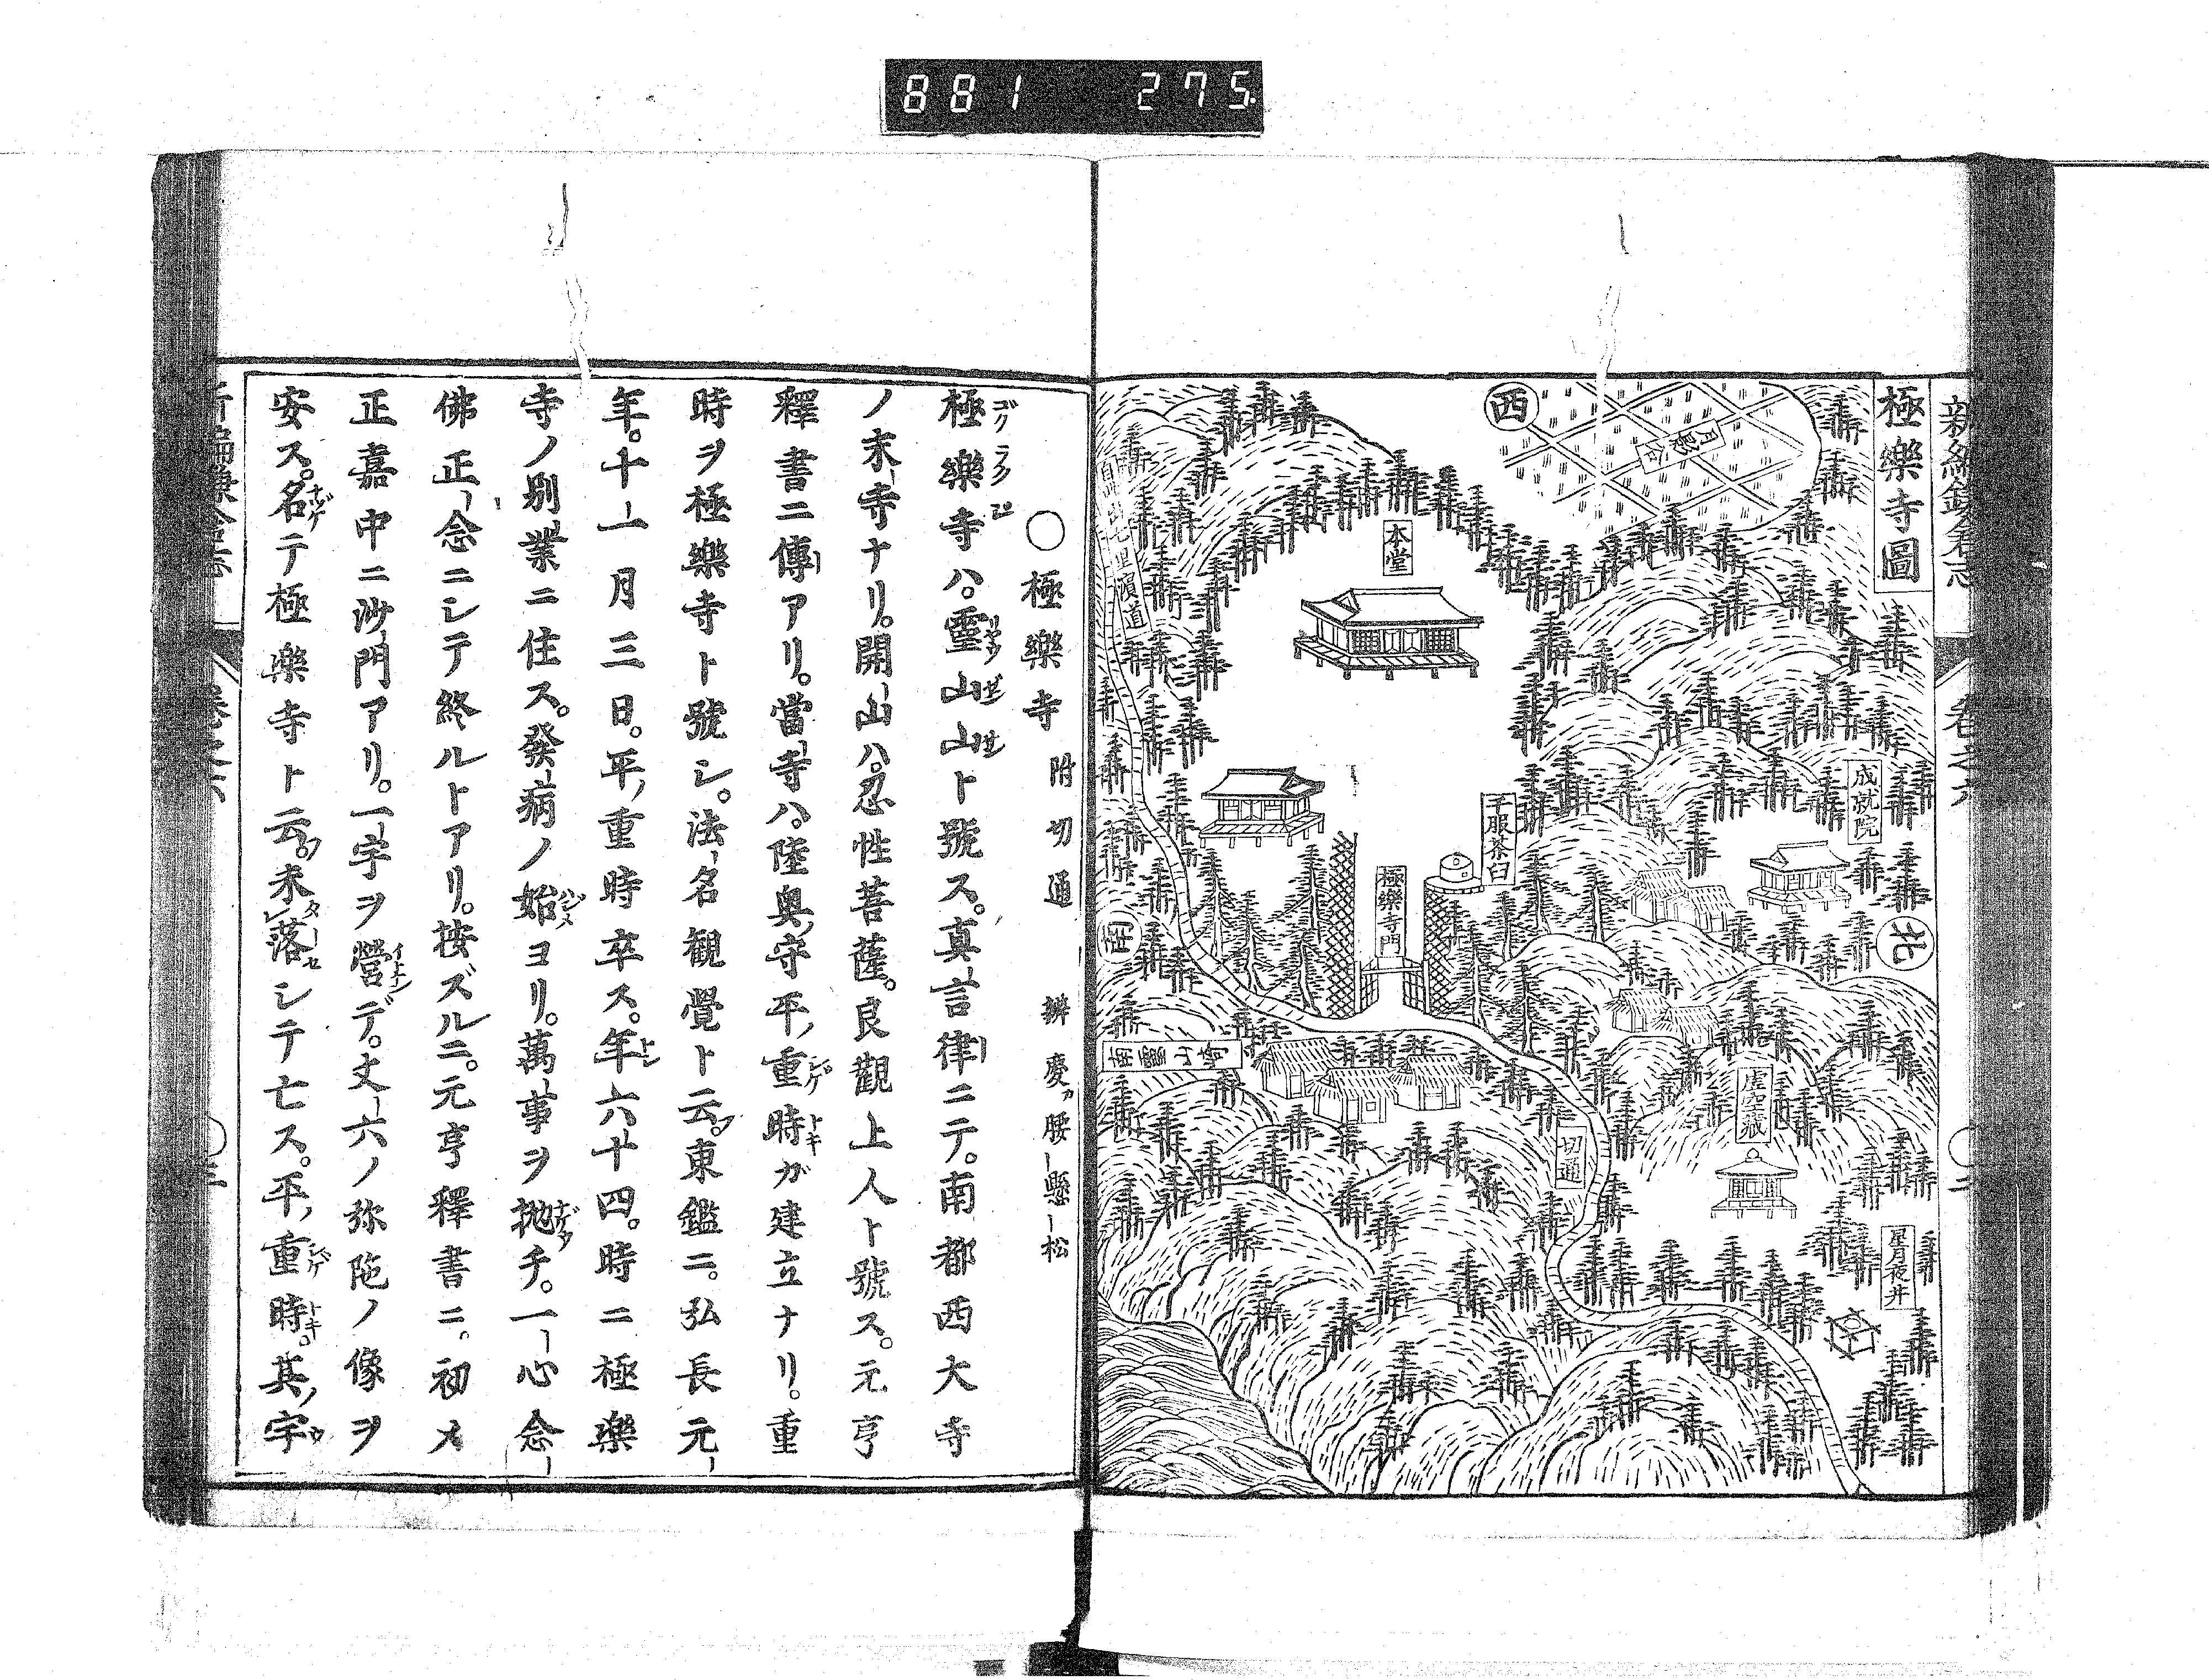 881 275
新編鎌倉志
卷之六
極樂寺圖
西
月影谷
本堂
七里濱道
成就院
千服茶臼
極樂寺門
南
北
靈山崎
虚空藏
切通
星月夜井
○極樂寺 附切通 辨慶ガ腰懸松
極樂寺ハ。靈山山ト號ス。真言律ニテ。南都西大寺
ノ末寺ナリ。開山ハ。忍性菩薩。良觀上人ト號ス。元亨
釋書ニ傳アリ。當寺ハ。陸奥守平重時ガ建立ナリ。重
時ヲ極樂寺ト號シ。法名観覺ト云。東鑑ニ。弘長元
年。十一月三日。平重時卒ス。年六十四。時ニ極樂
寺ノ別業ニ住ス。發病ノ始ヨリ。萬事ヲ抛チ。一心念
佛正念ニシテ終ルトアリ。按ズルニ。元亨釋書ニ。初メ
正嘉中ニ沙門アリ。一宇ヲ營デ。丈六ノ弥陁ノ像ヲ
安ス。名テ極樂寺ト云。未落シテ亡ス。平重時。其宇